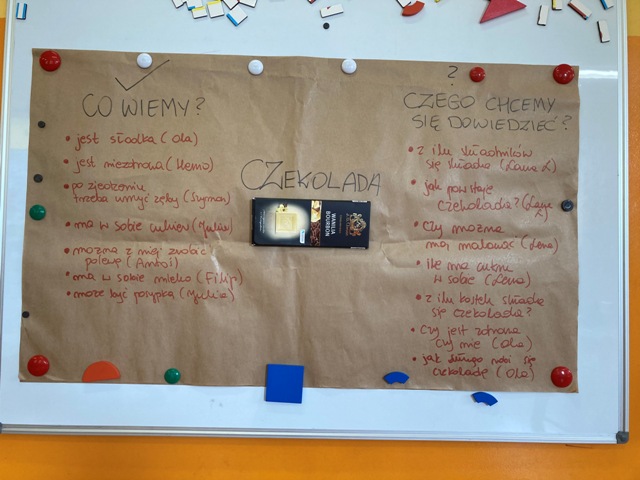 CO WIEMY?
• jest słodka (Ola)
• jest niezdrowa (Memo)
• po zjedzeniu
trzeba umyć zęby (Szymon)
• ma w sobie cukier (Julia)
• można z niej zrobić
polewę (Antoś)
• ma w sobie mleko (Filip)
• może być posypką (Julia)
CZEKOLADA
VANILLA
BOURBON
?
CZEGO CHCEMY
SIĘ DOWIEDZIEĆ?
• z ilu składników
się składa (Lena Ł)
• jak powstaje
czekolada? (Lena
Ł)
• czy można
nią malować (Lena)
• ile ma cukru
w sobie (Lena)
• z ilu kostek składa
się czekolada?
• czy jest zdrowa
czy nie (Ola)
• jak długo robi się
czekoladę (Ola)